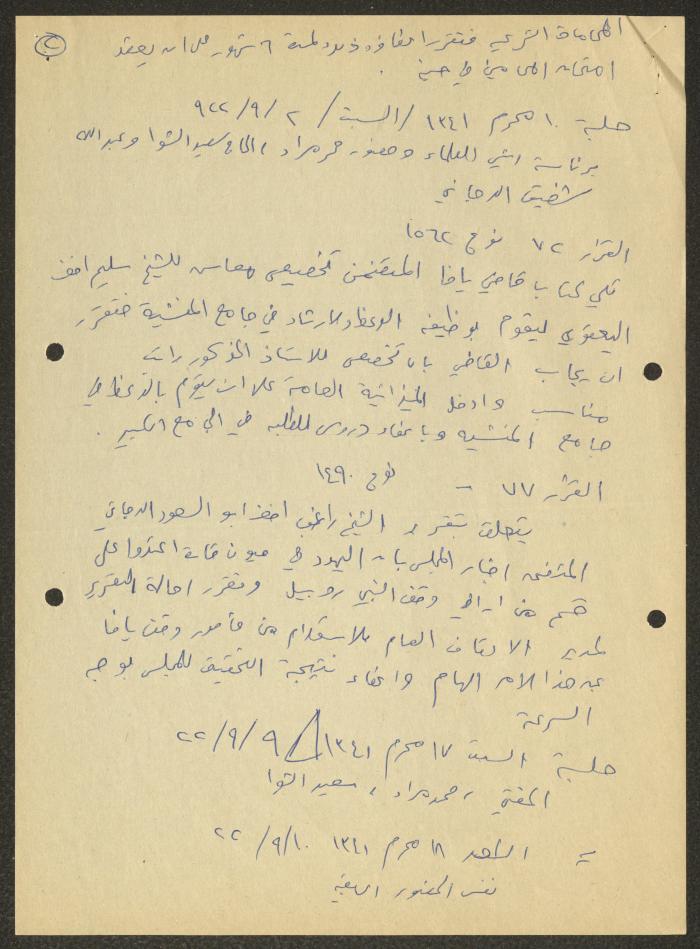 ٢
المحاماة الشرعية فتقرر اعفاؤه ذلك لمدة ٦ شهور على ان يعقد
امتحان المحامين في حينه .
جلسة ١٠ محرم ١٣٤١ / السبت / ٢ /٩/ ٩٢٢
برئاسة رئيس العلماء وحضور محمد مراد ، الحاج سعيد الشوا وعبدالله
شفيق الدجاني
القرار ٧٢ نوع ١٥٦٢
تلي كتاب قاضي يافا المتضمن تخصيص معاش للشيخ سليم افندي
اليعقوبي ليقوم بوظيفة الوعظ والارشاد في جامع المنشية فتقرر
ان يجاب القاضي بان تخصيص للاستاذ المذكور راتب
مناسب وادخل الميزانية العامة على ان يقوم بالوعظ في
جامع المنشيه وباعطاء دروس للطلبه في الجامع الكبير .
القرار ٧٧ - نوع ١٤٩٠
يتعلق بتقرير الشيخ راغب افندي ابو السعود الدجاني
المتضمن اخبار المجلس بان اليهود في عيون قارة اعتدوا على
قسم من اراضي وقف النبي روبين وتقرر احالة التقرير
لمدير الاوقاف العام للاستعلام من مأمور وقف يافا
عن هذا الامر الهام واعطاء نتيجة التحقيق للمجلس بوجه
السرعة
جلسة السبت ١٧ محرم ١٣٤١ / ٩/٩/ ٢٢
المفتي ، محمد مراد ، سعيد الشوا
= الاحد ١٨ محرم ١٣٤١ ١٠/ ٩/ ٢٢
نفس الحضور